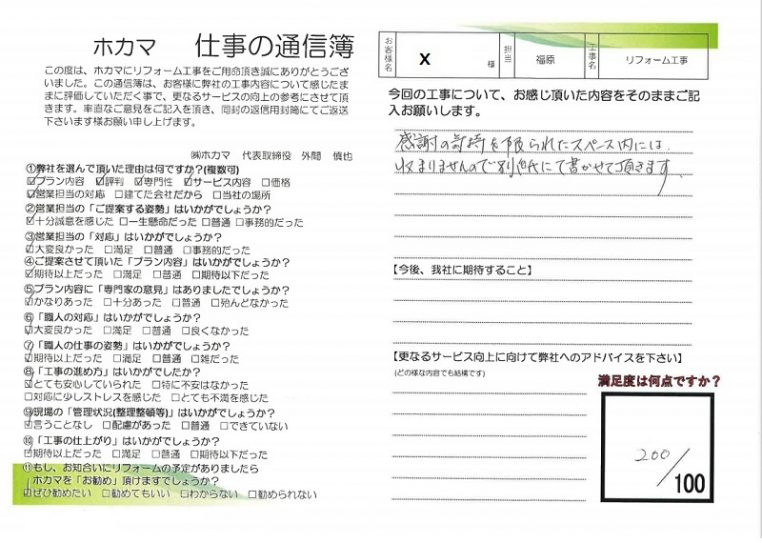 ホカマ 仕事の通信簿
この度は、ホカマにリフォーム工事をご用命頂き誠にありがとうござ
いました。この通信簿は、お客様に弊社の工事内容について感じたま
まに評価していただく事で、更なるサービスの向上の参考にさせて頂
きます。率直なご意見をご記入を頂き、同封の返信用封筒にてご返送
下さいます様お願い申し上げます。
㈱ホカマ 代表取締役 外間 慎也
①弊社を選んで頂いた理由は何ですか?(複数可)
☑プラン内容 ☑評判 ☑専門性 ☑サービス内容 □価格
☑営業担当の対応 □建てた会社だから □当社の場所
②営業担当の「ご提案する姿勢」はいかがでしょうか?
☑十分誠意を感じた □一生懸命だった □普通 □事務的だった
③営業担当の「対応」はいかがでしょうか?
☑大変良かった □満足 □普通 □事務的だった
④ご提案させて頂いた「プラン内容」はいかがでしょうか?
☑期待以上だった □満足 □普通 □期待以下だった
⑤プラン内容に「専門家の意見」はありましたでしょうか?
☑かなりあった □十分あった □普通 □殆んどなかった
⑥「職人の対応」はいかがでしょうか?
☑大変良かった □満足 □普通 □良くなかった
⑦「職人の仕事の姿勢」はいかがでしょうか?
☑期待以上だった □満足 □普通 □雑だった
⑧「工事の進め方」はいかがでしたか?
☑とても安心していられた □特に不安はなかった
□対応に少しストレスを感じた □とても不満を感じた
⑨現場の「管理状況(整理整頓等)」はいかがでしょうか?
☑言うことなし □配慮があった □普通 □できていない
⑩「工事の仕上がり」はいかがでしょうか?
☑期待以上だった □満足 □普通 □期待以下だった
⑪もし、お知合いにリフォームの予定がありましたら
ホカマを「お勧め」頂けますでしょうか?
☑ぜひ勧めたい □勧めてもいい □わからない □勧められない
お客様名 X 様 担当 福原 工事名 リフォーム工事
今回の工事について、お感じ頂いた内容をそのままご記
入お願いします。
感謝の気持を限られたスペース内には
収まりませんので別紙にて書かせて頂きます。
【今後、我社に期待すること】
【更なるサービス向上に向けて弊社へのアドバイスを下さい】
(どの様な内容でも結構です)
満足度は何点ですか?
200/100